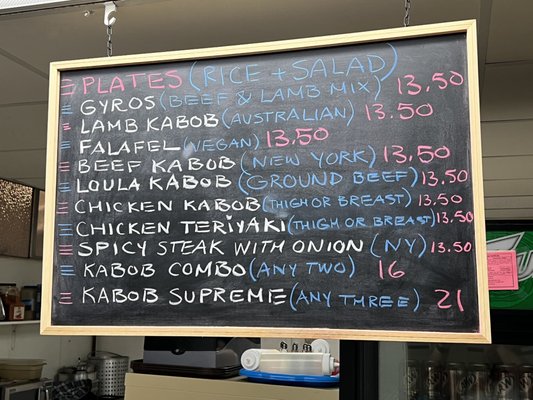 PLATES (RICE + SALAD)
GYROS (BEEF & LAMB MIX) 13.50
LAMB KABOB (AUSTRALIAN) 13.50
FALAFEL (VEGAN) 13.50
BEEF KABOB (NEW YORK) 13.50
LOULA KABOB (GROUND BEEF) 13.50
CHICKEN KABOB (THIGH OR BREAST) 13.50
CHICKEN TERIYAKI (THIGH OR BREAST) 13.50
SPICY STEAK WITH ONION (NY) 13.50
KABOB COMBO (ANY TWO) 16
KABOB SUPREME (ANY THREE) 21